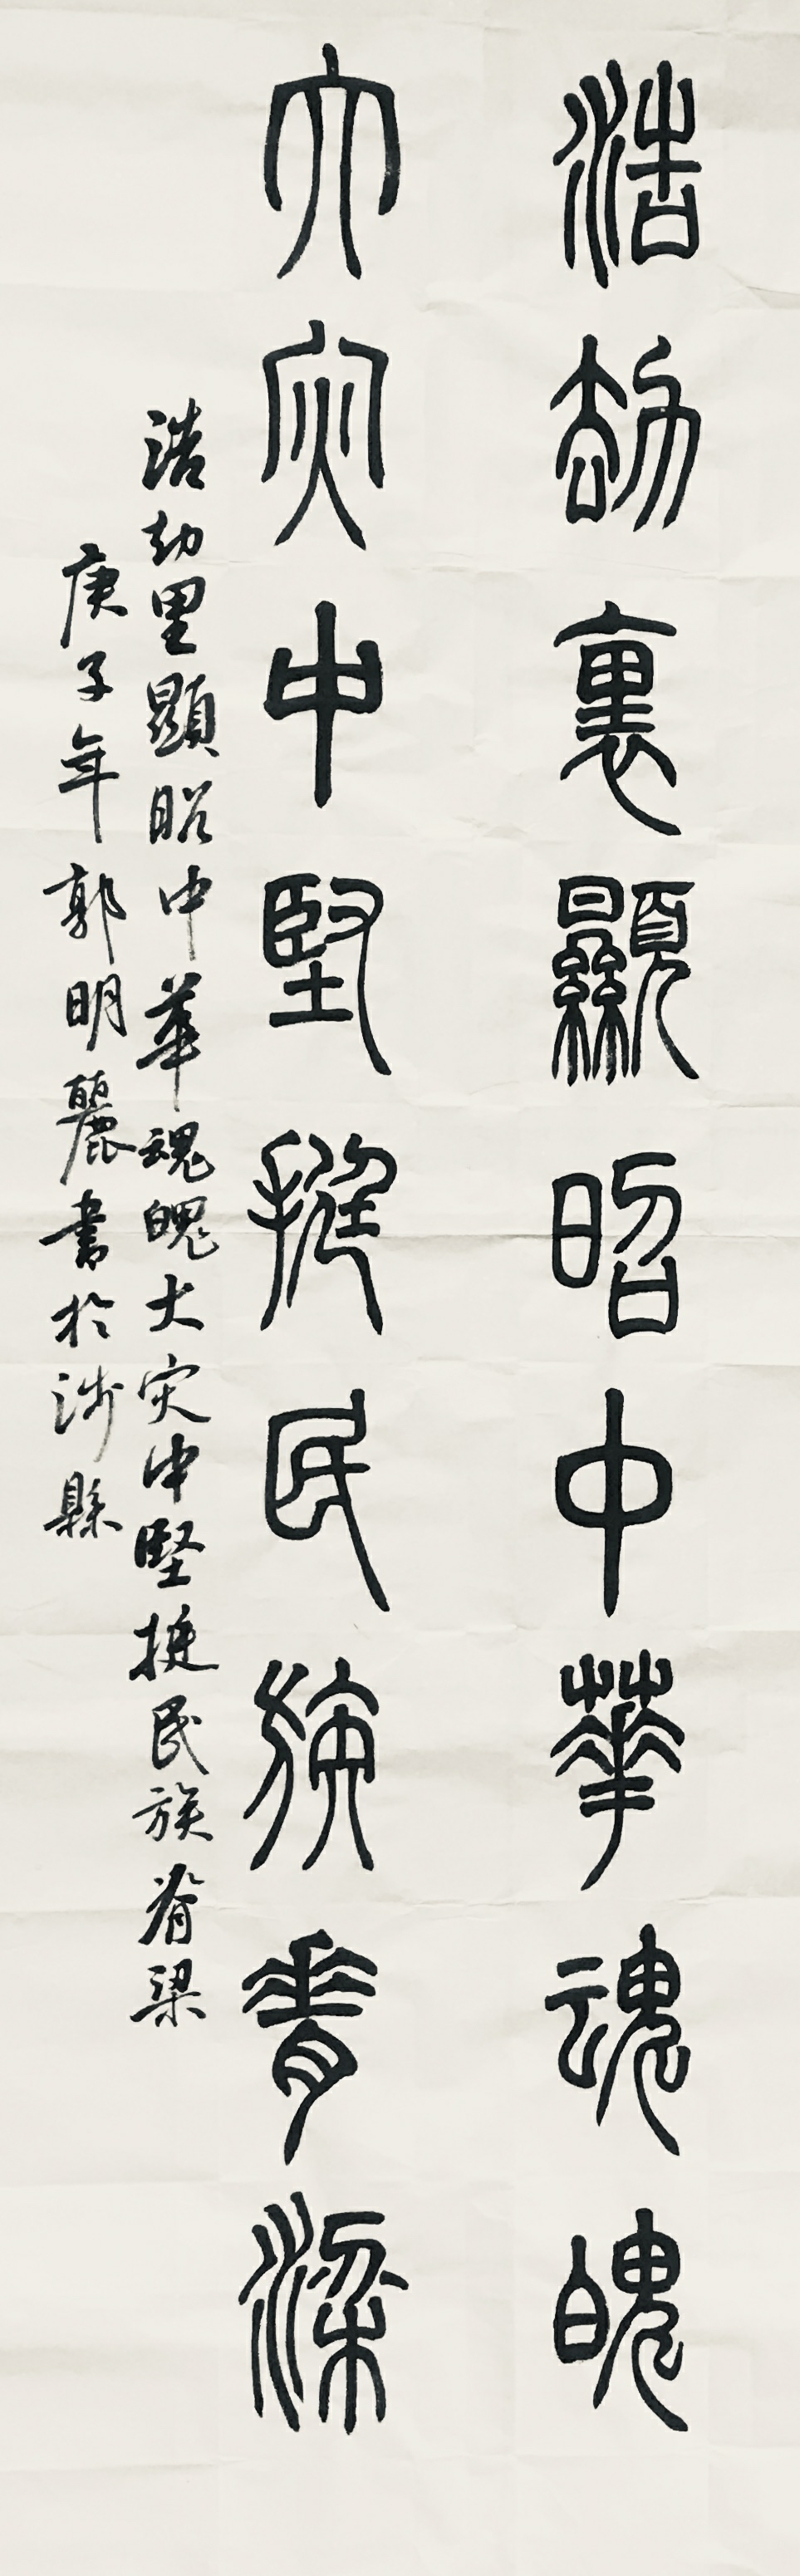 浩劫裏顯昭中華魂魄
大灾中堅挺民族脊梁
浩劫里顯昭中華魂魄大灾中堅挺民族脊梁
庚子年郭明麗書於涉縣